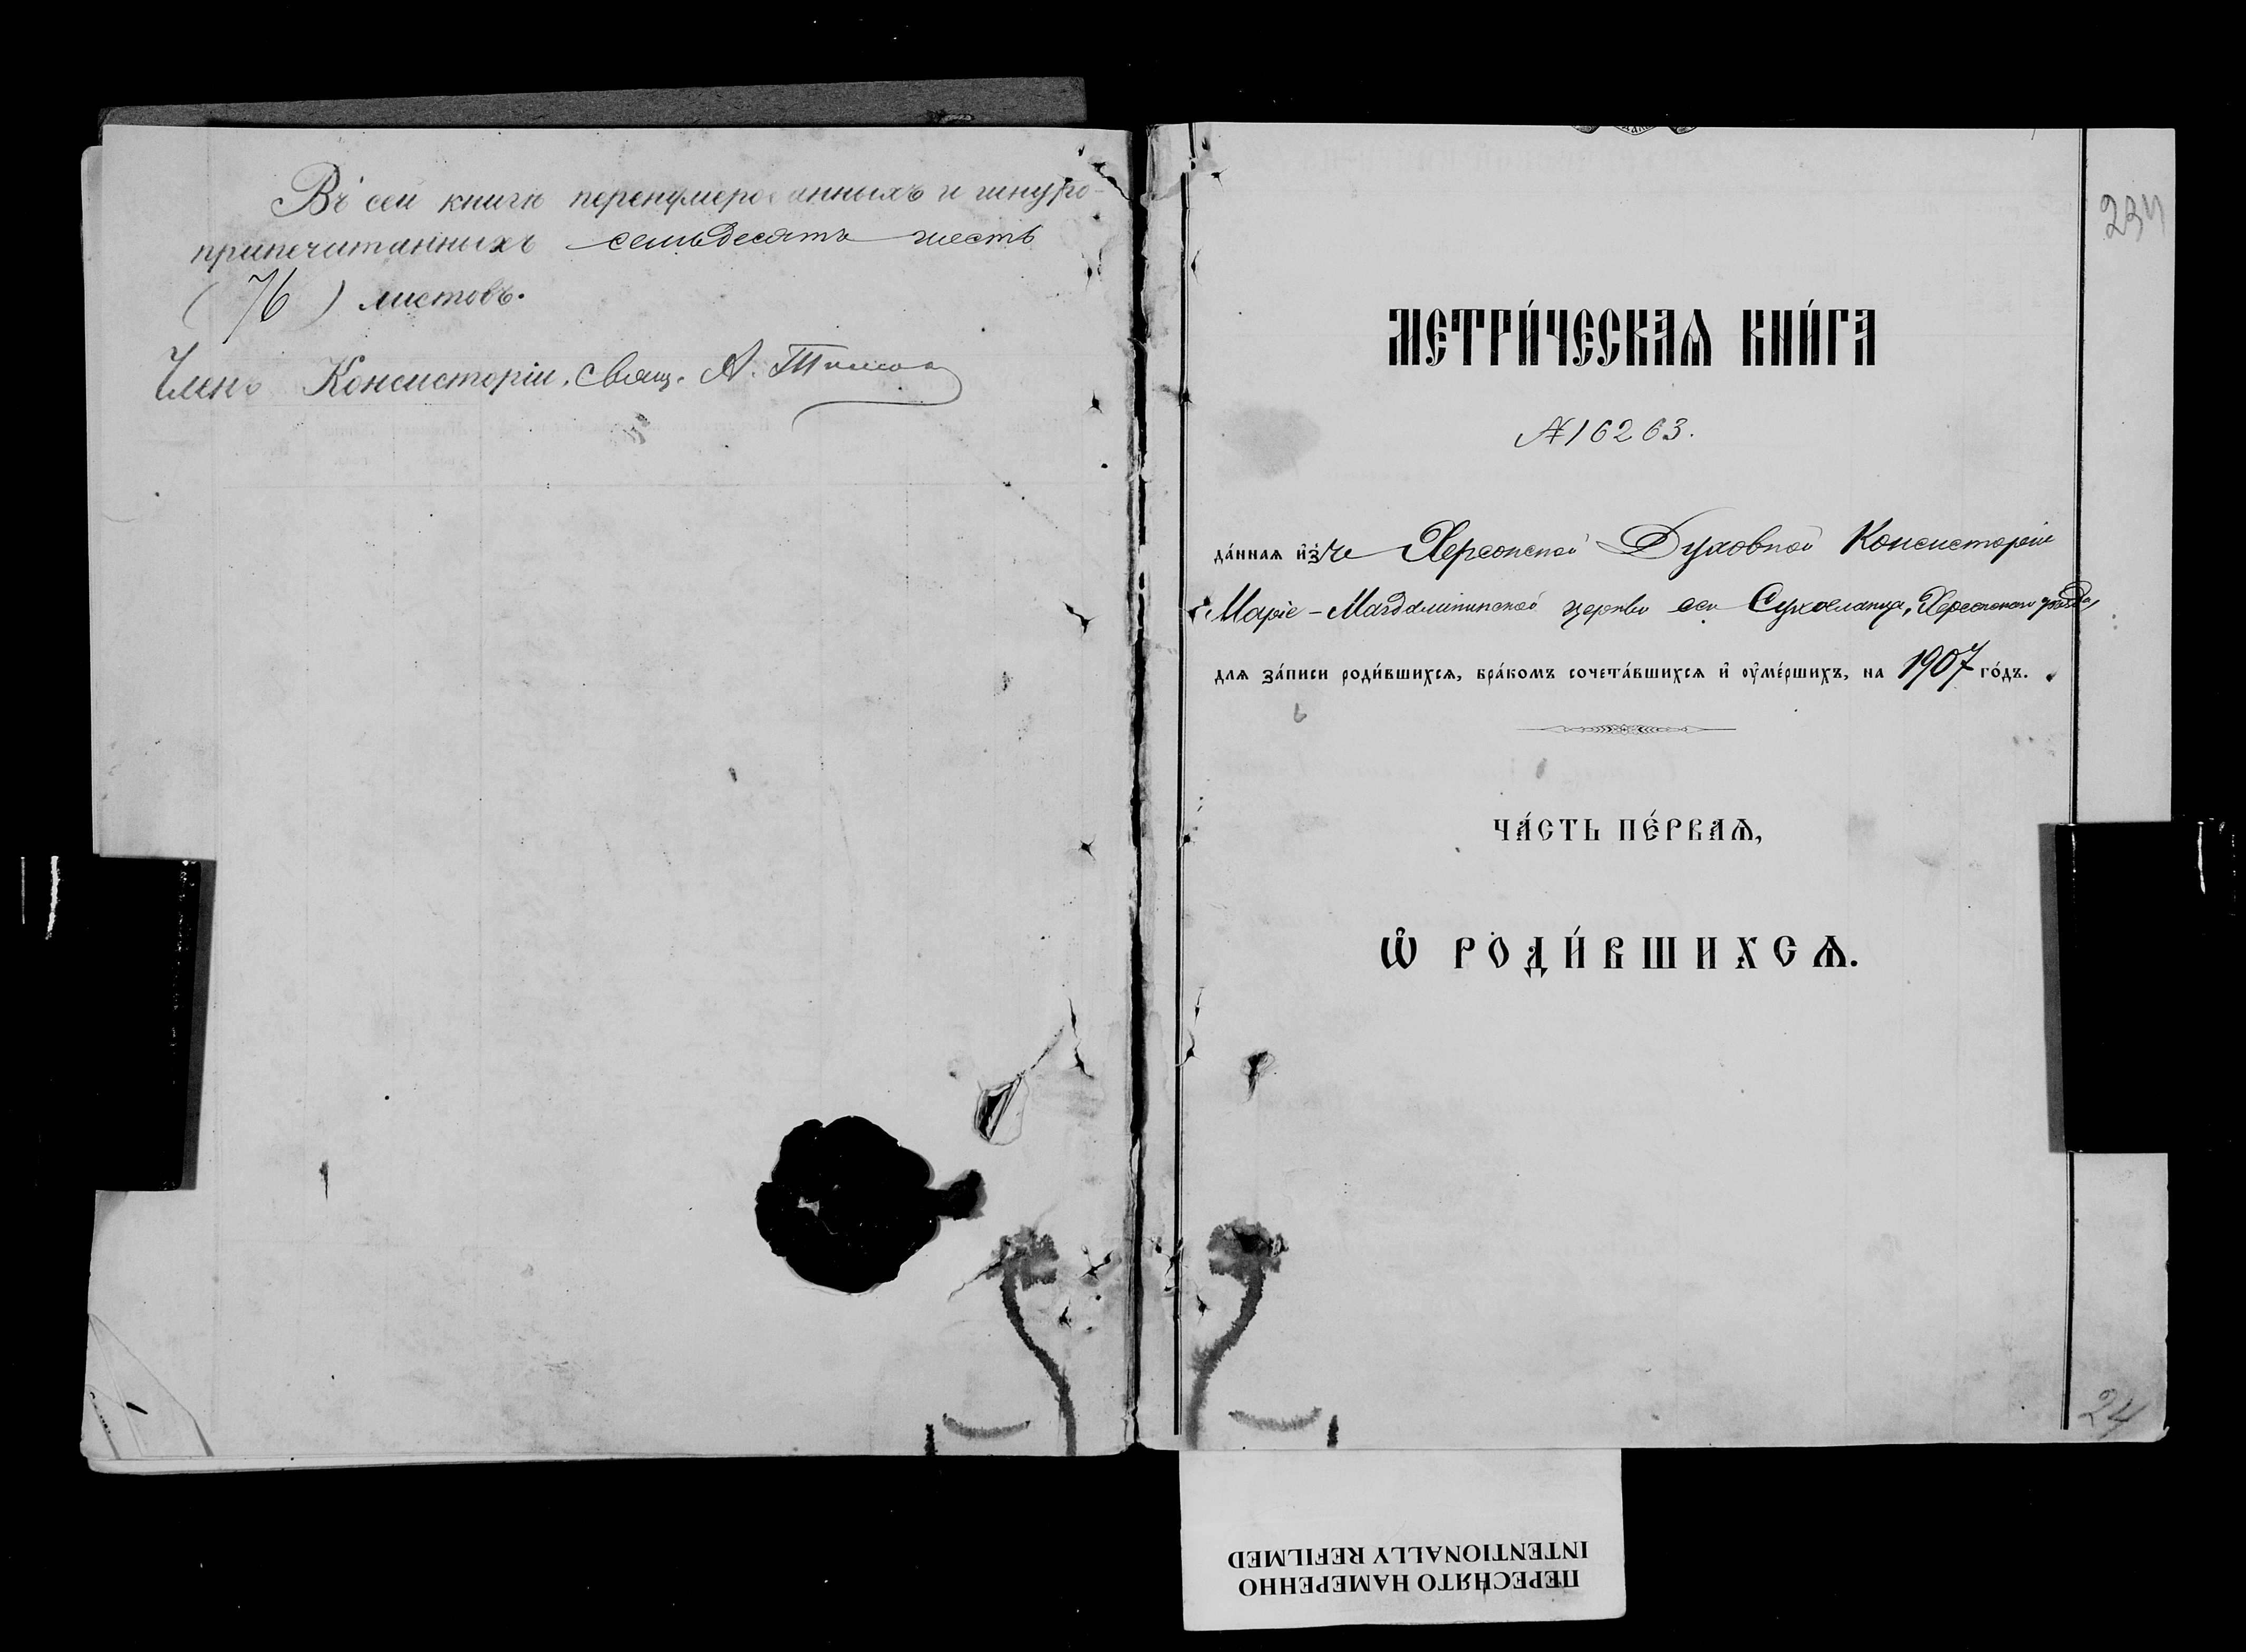 Въ сей книгѣ перенумерованныхъ и шнуро-
припечатанныхъ семьдесятъ шесть
( 76 ) листовъ.
Членъ Консисторіи, свящ. А.
234
МЕТРИ́ЧЕСКАѦ КНИ́ГА
№ 16263.
да́ннаѧ и҆зъ Херсонской Духовной Консисторіи
Маріе-Магдалининской церкви села Сухоеланца, Херсонского уѣзда,
длѧ за́писи роди́вшихсѧ, бра́комъ сочета́вшихсѧ и҆ оу҆ме́ршихъ, на 1907 го́дъ.
ЧА́СТЬ ПЕ́РВАѦ,
Ѽ РОДИ́ВШИХСѦ.
24
ПЕРЕСНЯТО НАМЕРЕННО
INTENTIONALLY REFILMED